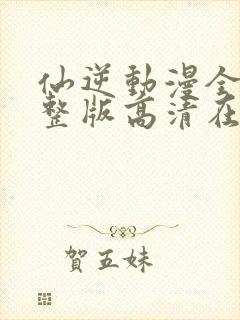 仙逆動漫全
整版高清在
賀五妹